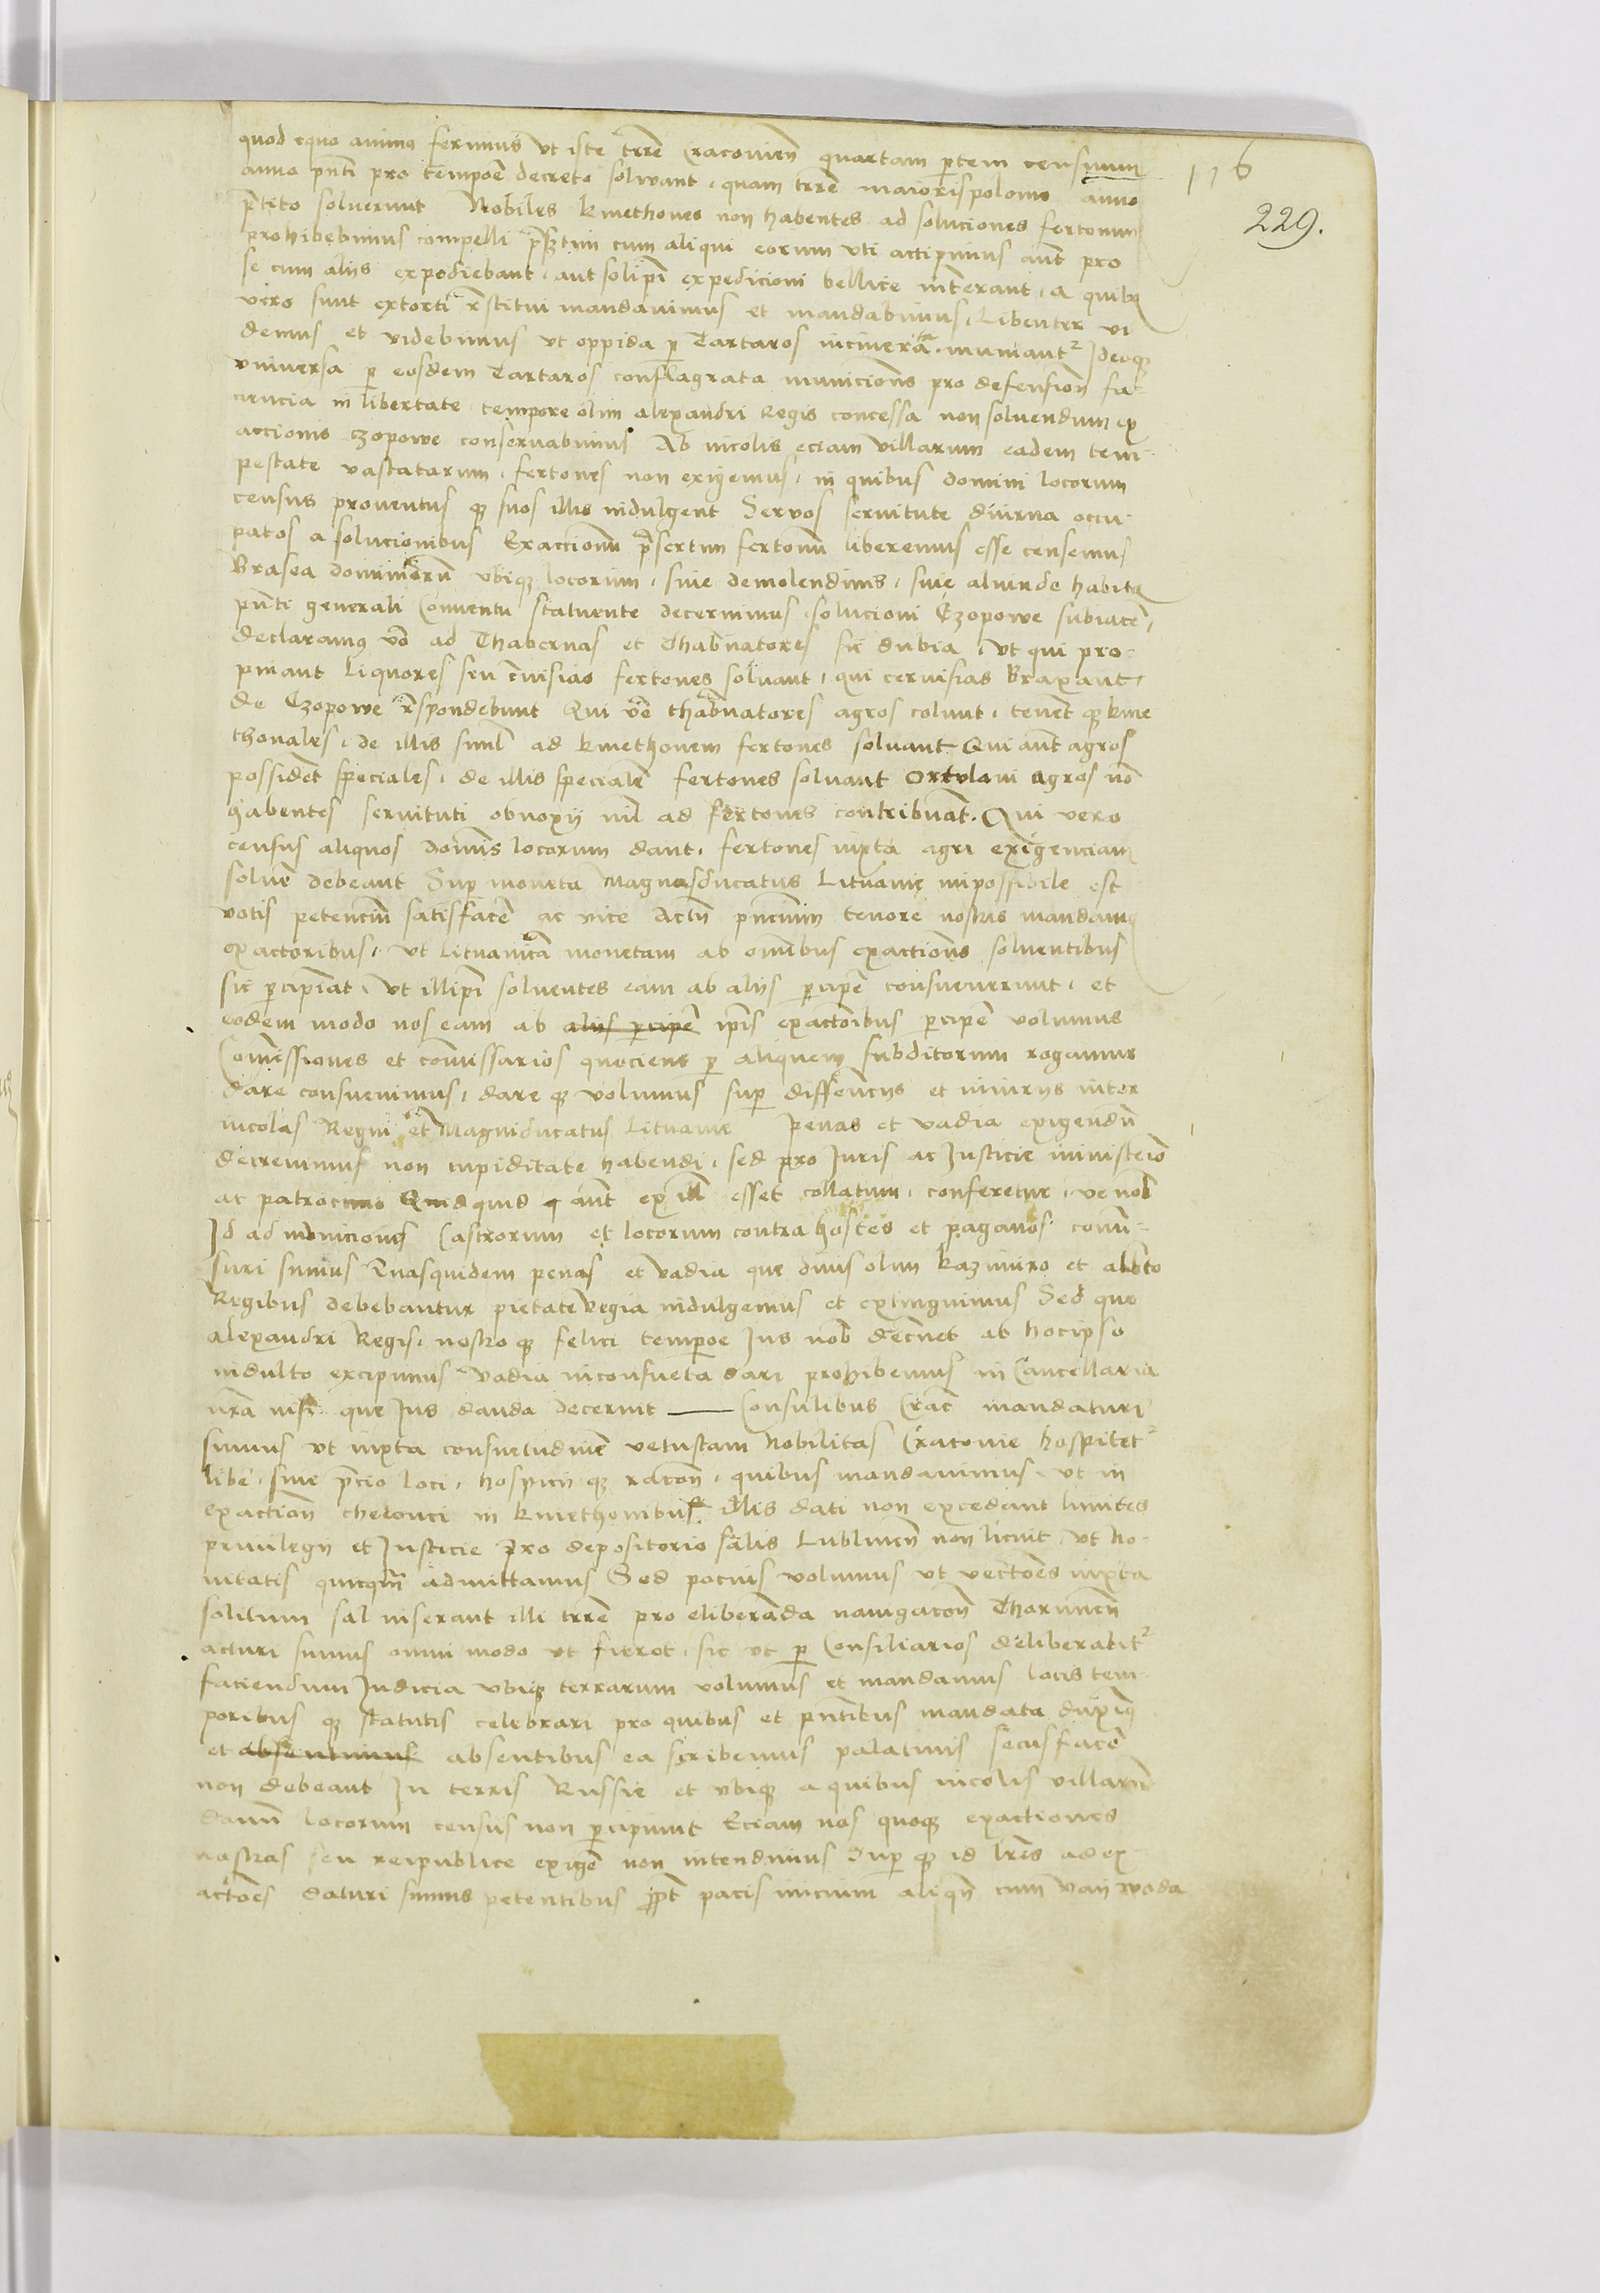 116
229.
quod equo animo ferimus ut iste trre Cracovien quartam ptem censuum
anno pnti pro tempore decreto solvant, quam trre maiorispolonie anno
pretito solverunt Nobiles kmethones non habentes ad soluciones fertonum
prohibebimus compelli psertim cum aliqui eorum uti accipimus aut pro
se cum aliis expediebant, aut soli ipi expedicioni bellice interant, a quibus
vero sunt extorti restitui mandavimus et mandabimus, Libenter vi
demus et videbimus ut oppida p Tartaros incinerata muniantur Ideoque
universa p eosdem Tartaros conflagrata municionis pro defension fa
 in libertate tempore olim alexandri Regis concessa non solvendum ex
accionis czopowe conservabimus Ab incolis eciam villarum eadem tem
pestate vastatarum, fertones non exigemus, in quibus domini locorum
census proventus que suos illis indulgent Servos servitute diurna occu
patos a solucionibus Exaccionum psertim fertonum liberemus esse censemus
Brasea dominorum ubique locorum, sive de molendinis, sive aliunde habita
pnti generali Conventu statuente decernimus, solucioni Czopowe subiacere,
Declaramus vero ad Thabernas et Thabernatores sic dubia, ut qui pro-
pinant liquores seu cervisias fertones solvant, qui cervisias braxant,
de Czopowe respondebunt Qui vero thabernatores agros colunt, tenent que kme
thonales, de illis simul ad kmethonem fertones solvant Qui aut agros
possident speciales, de illis speciale fertones solvant Ortulani agros non
habentes servituti obnoxii nil ad fertones contribuant. Qui vero
census aliquos dominis locorum dant, fertones iuxta agri exigenciam
solvere debeant Super moneta Magniducatus Lituanie impossibile est
votis petencium satisfacere ac vice pncium tenore nostris mandamus
exactoribus, ut lituanicam monetam ab omnibus exactionis solventibus
sic percipiant, ut illi ipi solventes eam ab aliis percipere consueverunt, et
eodem modo nos eam ab aliis percipere ipis exactoribus percipere volumus
Comissiones et comissarios quociens p aliquem subditorum rogamur
dare consuevimus, dare que volumus super differenciis et iniuriis inter
incolas Regni et Magniducatus Lituanie Penas et vadia exigendum
decrevimus non cupiditate habendi, sed pro Iuris ac Iusticie ministerio
ac patrocinio Quidquid aut ex illis esset collatum, conferetur, ve nob
Id ad municiones Castrorum et locorum contra hostes et paganos conver-
suri sumus Quasquidem penas et vadia que divis olim kazimiro et alberto
Regibus debebantur pietate regia indulgemus et extinguimus Sed que
alexandri Regis, nostro que felici tempore Ius nob decernet ab hoc ipso
indulto excipimus Vadia inconsueta dari prohibemus in Cancellaria
nra nisi que Ius danda decernit — Consulibus Crac mandaturi
sumus ut iuxta consuetudinem vetustam Nobilitas Cracovie hospitetur
libere, sine precio loci, hospicii que racione, quibus mandavimus, ut in
exaction in kmethonibus illis dati non excedant limites
privilegii et Iusticie Pro depositorio salis Lublinen non licuit, ut no-
vitatis quicquam admittamus Sed pocius volumus ut vectores iuxta
solitum sal inserant illi trre pro eliberanda navigacone Thorunen
acturi sumus omni modo ut fieret, sic ut p Consiliarios deliberabitur
faciendum Iudicia ubique terrarum volumus et mandamus locis tem
poribus que statutis celebrari pro quibus et pntibus mandata duximus
et absentimus absentibus ea scribemus palatinis secus facere
non debeant In terris Russie et ubique a quibus incolis villarum
domini locorum census non percipiunt Eciam nos quoque exactiones
nostras seu reipublice exigere non intendimus Super que id lres ad ex
actores daturi sumus petentibus propter pacis inicium aliquod cum vaiiwoda